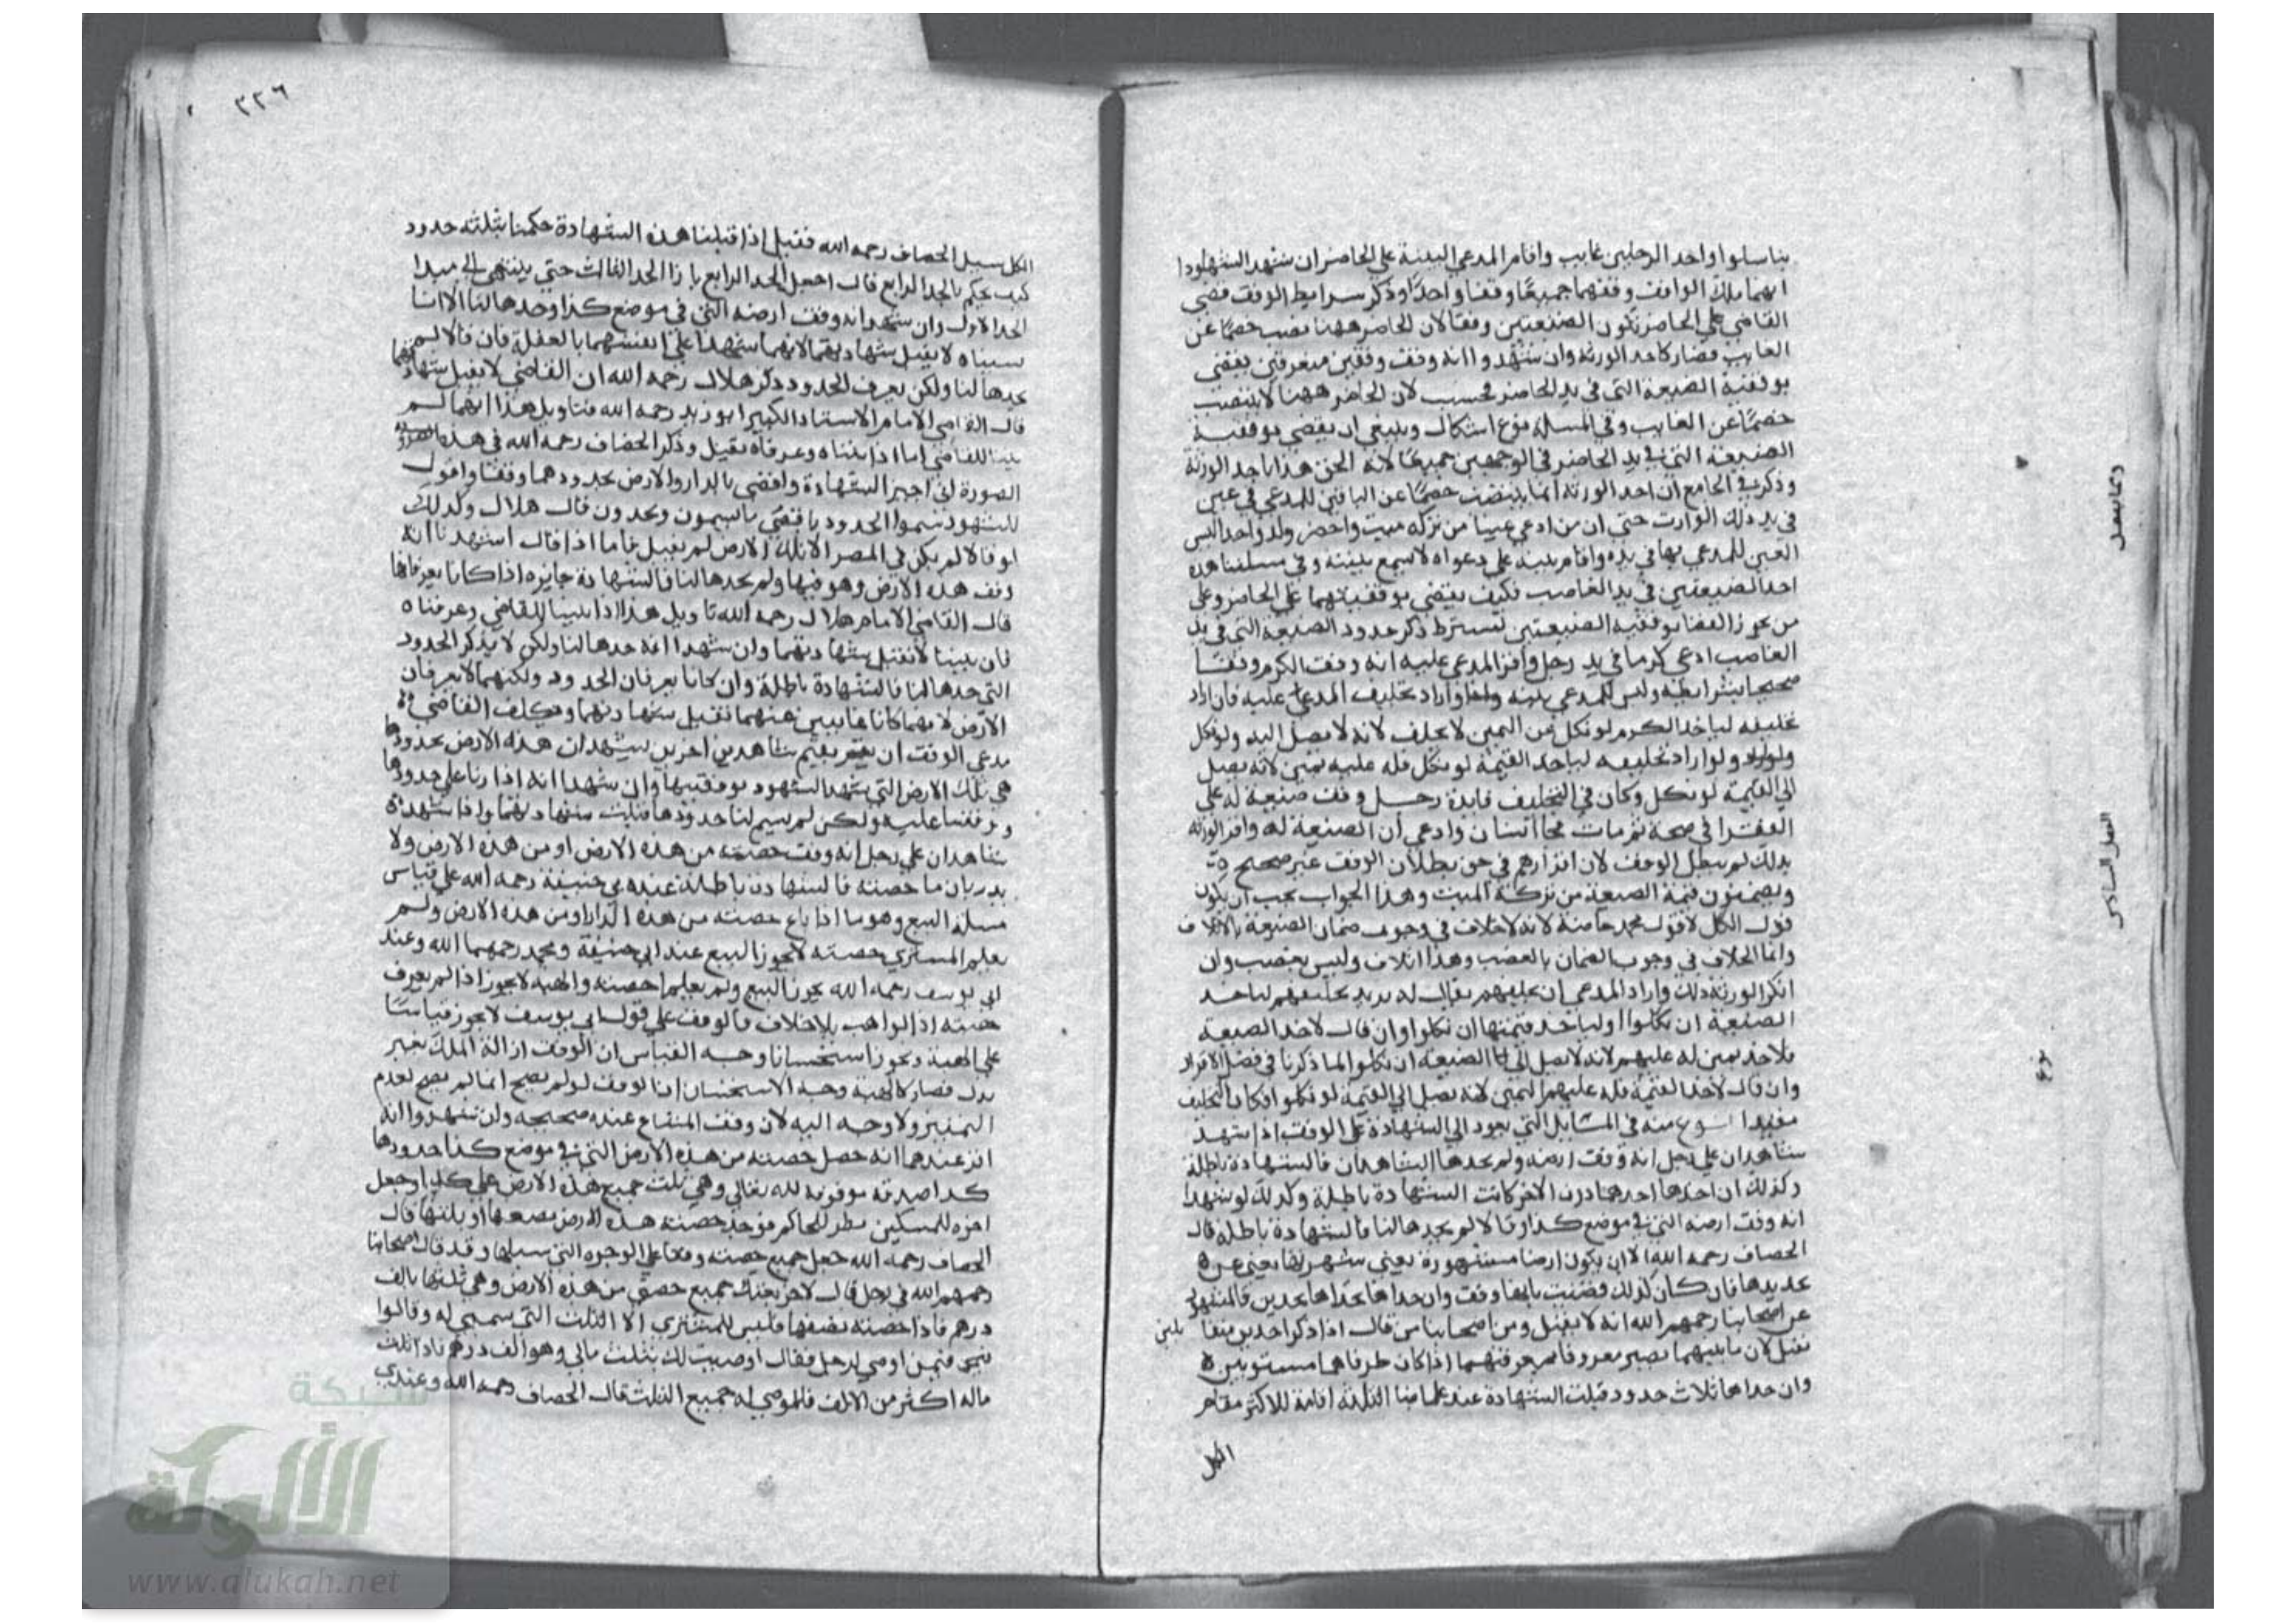 بناسلوا واحد الرجلين غايب واقام المدعي البينة علي الحاضر ان شهد الشهود
انهما ملك الواقف وقفهما جميعًا وقفا واحدًا وذكر شرايط الوقف قضي
القاضي علي الحاضر بكون الضيعتين وقفا لان الحاضر ههنا نصب خصمًا عن
الغايب فصار كاحد الورثة وان شهدوا انه وقف وقفين متفرقين يقضي
بوقفية الضيعة التي في يد الحاضر فحسب لان الحاضر ههنا لا ينتصب
خصمًا عن الغايب وفي المسلة نوع اشكال وينبغي ان يقضي بوقفية
الضيعة التي في يد الحاضر في الوجهين جميعًا لانه الحق هذا باحد الورثة
وذكر في الجامع ان احد الورثة انما ينتصب خصمًا عن الباقين للمدعي في عين
في يد ذلك الوارث حتي ان من ادعي عينا من تركه ميت واحضر ولد واحد اليس
العين للمدعي بها في يده واقام بينة علي دعواه لا تسمع بينته وفي مسلتنا هذه
احد الضيعتين في يد الغاصب فكيف يقضي بوقفيتهما علي الحاضر وعلي
من يجوز القضا بوقفية الضيعتين تشترط ذكر حدود الضيعة التي في يد
الغاصب ادعي كرما في يد رجل واقر المدعي عليه انه وقف الكرم وقفًا
صحيحا بشرايطه وليس للمدعي بينه واراد تحليف المدعي عليه فان اراد
تحليفه لياخذ الكرم لو نكل عن اليمين لا يحلف لانه لا يصل اليه ولو نكل
ولو اراد تحليفه لياخذ القيمة لو نكل فله عليه يمين لانه يصل
الي القيمة لو نكل وكان في التحليف فايدة رجل وقف ضيعة له علي
الفقرا في صحة ثم مات فجا انسان وادعي ان الضيعة له واقر الورثة
بذلك لم يبطل الوقف لان اقرارهم في حق بطلان الوقف غير صحيح
ويضمنون قيمة الضيعة من تركة الميت وهذا الجواب يجب ان يكون
قول الكل لا قول محمد خاصة لانه لا خلاف في وجوب ضمان الضيعة بالاتلاف
وانما الخلاف في وجوب الضمان بالغصب وهذا اتلاف وليس بغصب وان
انكر الورثة ذلك واراد المدعي ان يحلفهم يقال له تريد تحليفهم لياخذ
الضيعة ان نكلوا او لياخذ قيمتها ان نكلوا وان قال لاخذ الضيعة
فلا خذ يمين له عليهم لانه لا يصل الي الضيعة ان نكلوا لما ذكرنا في فصل الاقرار
وان قال لاخذ القيمة فله عليهم اليمين لانه يصل الي القيمة لو نكلوا فكان التحليف
مفيدا نوع منه في المسايل التي تعود الي الشهادة علي الوقف اذا شهد
شاهدان علي رجل انه وقف ارضه ولم يحدها الشاهدان فالشهادة باطلة
وكذلك ان حدها احدهما دون الاخر كانت الشهادة باطلة وكذلك لو شهدا
انه وقف ارضه التي في موضع كذا وقالا لم يحدها لنا فالشهادة باطلة قال
الخصاف رحمه الله الا ان يكون ارضا مشهورة يعني شهرتها يعني عن
تحديدها فان كان كذلك قضيت بانها وقف وان حداها بحدين فالمشهور
عن اصحابنا رحمهم الله انه لا يقبل ومن اصحابنا من قال اذا ذكرا حدين
تقبل لان ما بينهما يصير معروفا بمعرفتهما اذا كان طرفاهما مستويين
وان حداها ثلاث حدود قبلت الشهادة عند علمائنا الثلثة اقامة للاكثر مقام
الكل
الفصل السادس
نوع
٣٢٦
الكل سيل الخصاف رحمه الله فقيل اذا قبلنا هذه الشهادة حكمنا بثلثه حدود
كيف يحكم بالحد الرابع قال اجعل الحد الرابع بازا الحد الثالث حتي ينتهي الي مبدا
الحد الاول وان شهد انه وقف ارضه التي في موضع كذا وحدها لنا الا انا
نسيناه لا يقبل شهادتهما لانهما شهدا علي انفسهما بالغفلة فان قالا لم
يحدها لنا ولكن نعرف الحدود ذكر هلال رحمه الله ان القاضي لا يقبل شهادتهما
قال القاضي الامام الاستاد الكبير ابو زيد رحمه الله فتاويل هذا انهما لم
يبينا للقاضي اما اذا بيناه وعرفاه تقبل وذكر الخصاف رحمه الله في هذه
الصورة اني اجيز الشهادة واقضي بالدار والارض بحدودهما وقفا واقول
للشهود سموا الحدود فاقضي بما يسمون ويحدون قال هلال وكذلك
لو قالا لم يكن في المصر الا تلك الارض لم تقبل فاما اذا قال اشهدنا انه
وقف هذه الارض وهو فيها ولم يحدها لنا فالشهادة جايزة اذا كانا يعرفانها
قال القاضي الامام هلال رحمه الله تاويل هذا اذا بينا للقاضي وعرفناه
فان بينا لا تقبل شهادتهما وان شهدا انه حدها لنا ولكن لا يذكر الحدود
التي حدها لنا فالشهادة باطلة وان كانا يعرفان الحدود ولكنهما لا يعرفان
الارض لانهما كانا غايبين عنهما تقبل شهادتهما ويكلف القاضي
مدعي الوقف ان يقيم شاهدين اخرين يشهدان هذه الارض بحدودها
هي تلك الارض التي شهد الشهود بوقفيتها وان شهدا انه اذا رنا علي حدودها
ووقفنا عليه ولكن لم يسم لنا حدودها قبلت شهادتهما واذا شهد
شاهدان علي رجل انه وقف حصته من هذه الارض او من هذه الارض ولا
يدريان ما حصته فالشهادة باطلة عند ابي حنيفة رحمه الله علي قياس
مسلة البيع وهو ما اذا باع حصته من هذه الدار او من هذه الارض ولم
يعلم المشتري حصته لا يجوز البيع عند ابي حنيفة ومحمد رحمهما الله وعند
ابي يوسف رحمه الله يجوز البيع ولم يعلم احصته والهبة لا يجوز اذا لم يعرف
حصته اذا الواهب بلا خلاف فالوقف علي قول ابي يوسف لا يجوز قياسًا
علي الهبة ويجوز استحسانا وجه القياس ان الوقف ازالة الملك بغير
بدل فصار كالهبة وجه الاستحسان ان الوقف لو لم يصح انما لم يصح لعدم
التمييز ولا وجه اليه لان وقف المشاع عنده صحيحه وان شهدوا انه
اقر عندهما انه جعل حصته من هذه الارض التي في موضع كذا حدودها
كذا صدقة موقوفة لله تعالي وهي ثلث جميع هذه الارض علي كذا وجعل
اخره للمسكين نظر الحاكم فوجد حصته هذه الارض نصفها او ثلثها قال
الخصاف رحمه الله جعل جميع حصته وقفا علي الوجوه التي سبلها وقد قال اصحابنا
رحمهم الله في رجل قال لاخر بعتك جميع حصتي من هذه الارض وهي ثلثها بالف
درهم فاذا حصته نصفها فليس للمشتري الا الثلث التي سمي له وقالوا
فيمن اوصي لرجل فقال اوصيت لك بثلث مالي وهو الف درهم فاذا ثلث
ماله اكثر من الالف فللموصي له جميع الثلث قال الخصاف رحمه الله وعندي
شبكة
الألوكة
www.alukah.net